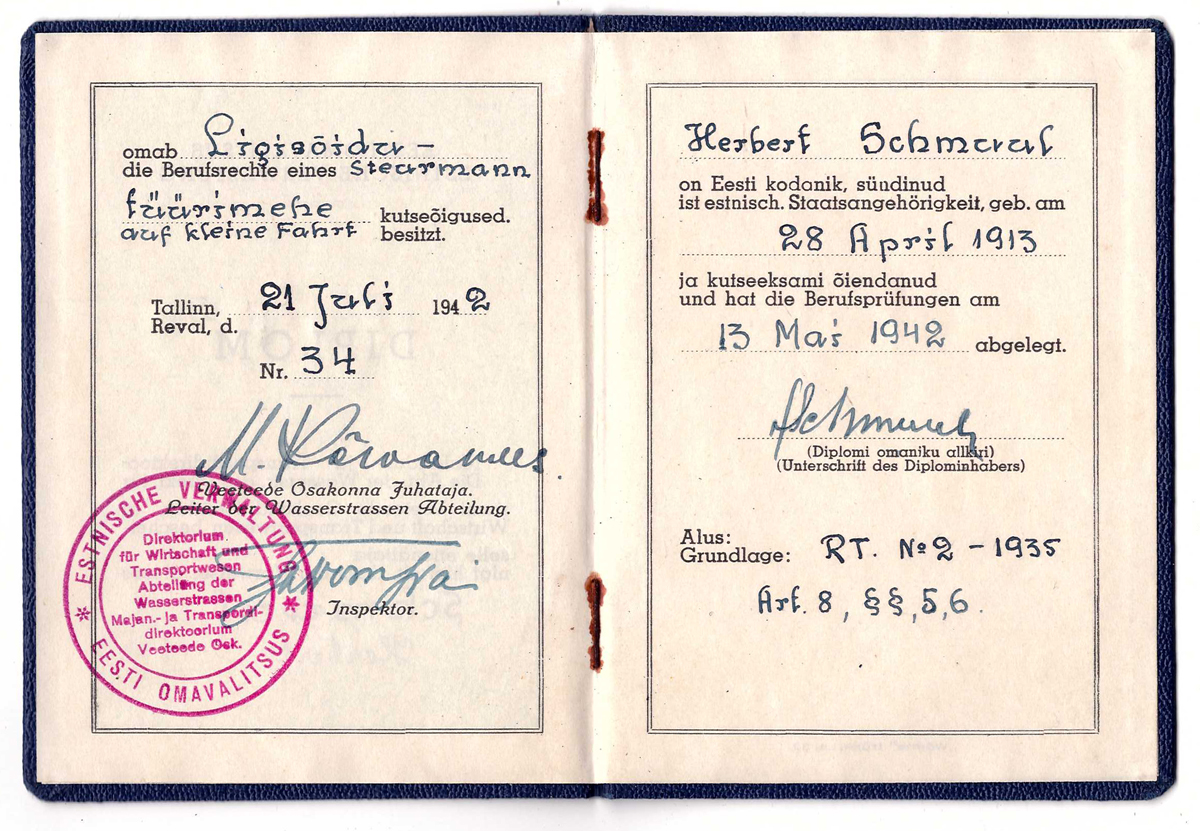 omab Ligisõidu-
die Berufsrechte eines Steurmann
tüürimehe kutseõigused.
auf kleine Fahrt besitzt.
Tallinn, 21 Juli 1942
Reval, d.
Nr. 34
M.
Veeteede Osakonna Juhataja.
Leiter der Wasserstrassen Abteilung.
Inspektor.
ESTNISCHE VERWALTUNG
Direktorium
für Wirtschaft und
Transportwesen
Abteilung der
Wasserstrassen
Majan.- ja Transpordi-
direktoorium
Veeteede Osk.
EESTI OMAVALITSUS
Herbert Schmaul
on Eesti kodanik, sündinud
ist estnisch. Staatsangehörigkeit, geb. am
28 April 1913
ja kutseeksami õiendanud
und hat die Berufsprüfungen am
13 Mai 1942 abgelegt.
(Diplomi omaniku allkiri)
(Unterschrift des Diplominhabers)
Alus:
Grundlage: RT. № 2 - 1935
Art. 8, §§, 5, 6.